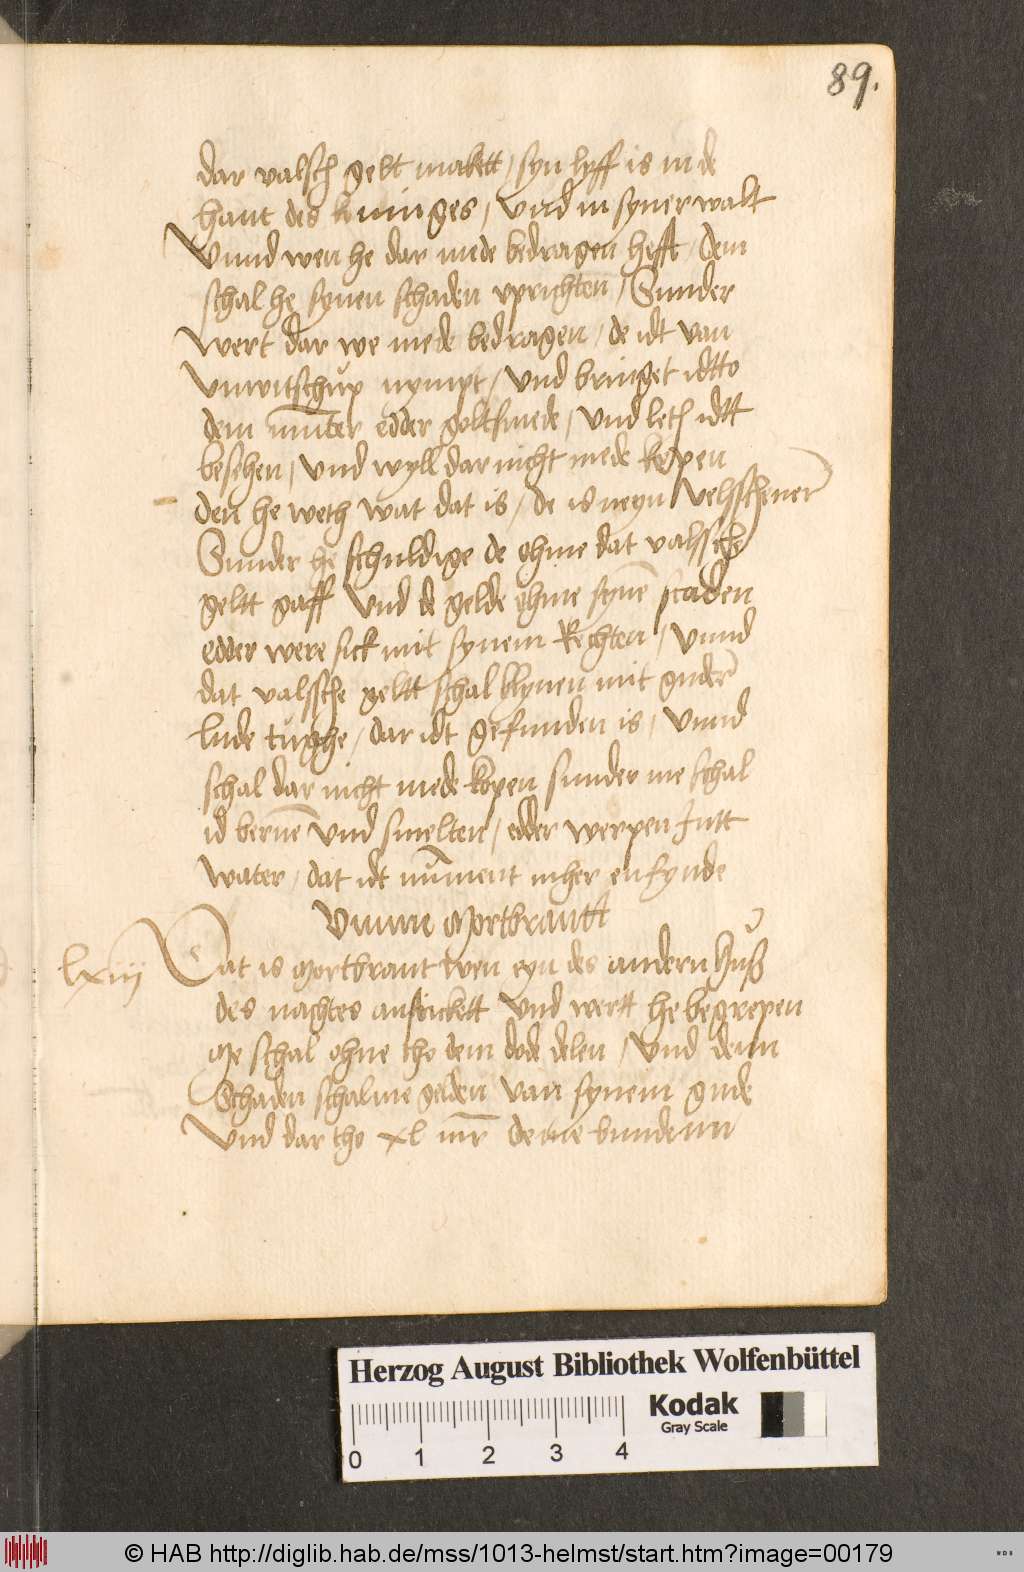 89.
dar valsch gelt makett / syn lyff is in de
hant des koninges / vnd in syner walt
Vnnd wen he dar mede bedragen hefft / dem
schal he synen schaden vprichten / Sunder
wert dar we mede bedragen / de idt van
vnwitschup nympt / vnd bringet idtto
dem munter edder goltsmede / vnd leth idtt
besehen / vnd wyll dar nicht mede kopen
den he weth wat dat is / de is neyn velsschener
Sunder he schuldige de ohme dat valssche
geltt gaff vnd de gelde ohme synē scaden
edder were sick mit synem Rechten / vnnd
dat valssche geltt schal klynen mit guder
lude tughe / dar idt gefunden is / vnnd
schal dar nicht mede kopen sunder me schal
id bernē vnd smelten / edder werpen Jntt
water / dat idt nūment mher en fynde
Vmme mortbrantt
lxiij Dat is mortbrant wen eyn des andern huß
des nachtes anstickett vnd wertt he begrepen
me schal ohne tho dem dode delen / vnd denn
Schaden schalme gelden van synem gude
vnd dar tho xl mr deme bundenn
Herzog August Bibliothek Wolfenbüttel
Kodak
Gray Scale
0 1 2 3 4
© HAB http://diglib.hab.de/mss/1013-helmst/start.htm?image=00179